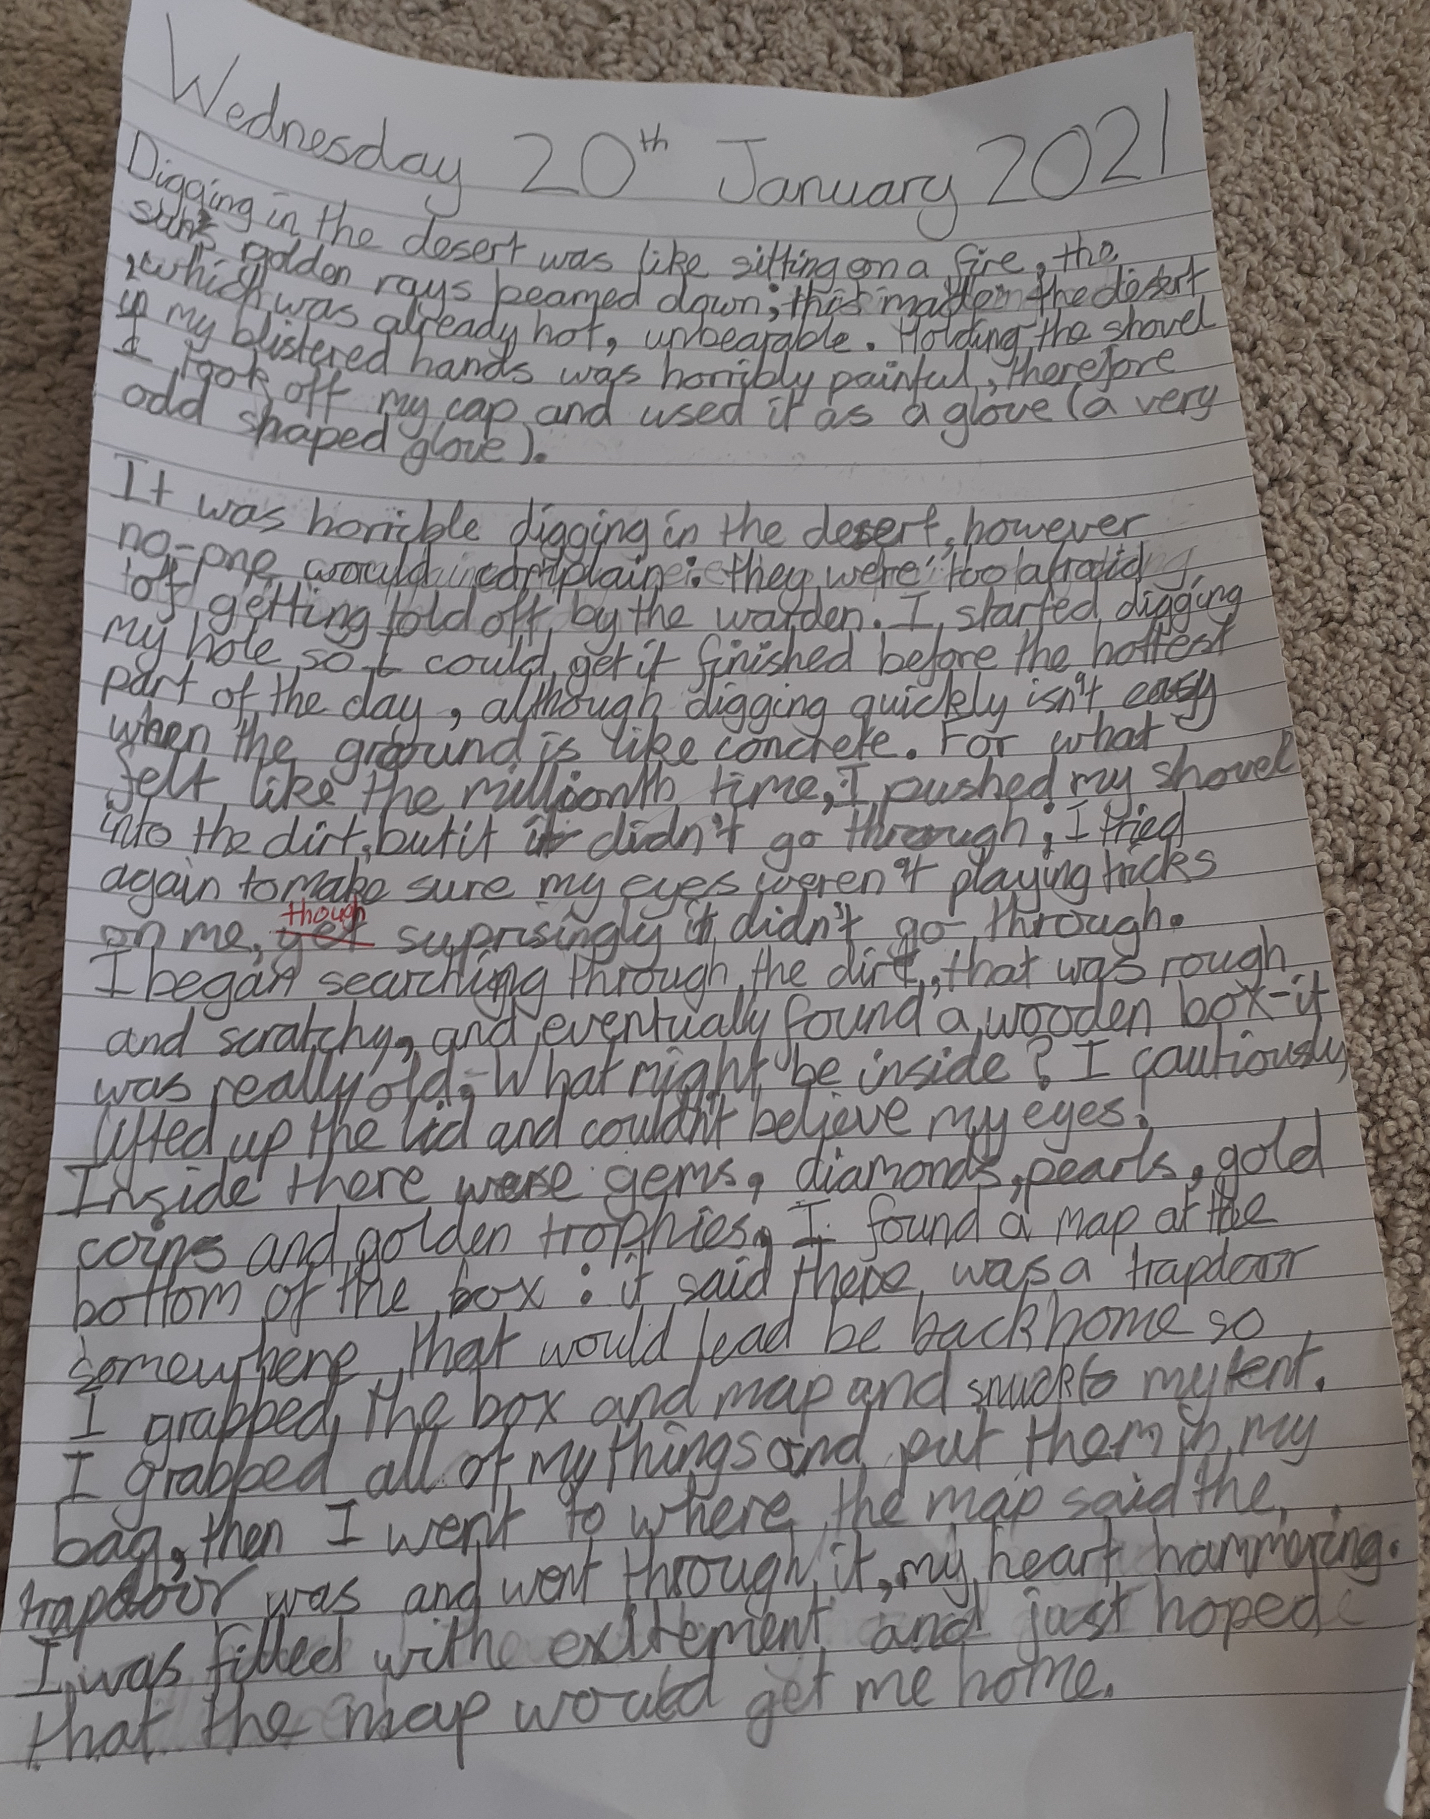 Wednesday 20th January 2021
Digging in the desert was like sitting on a fire, the
sun's golden rays beamed down; this made the desert
, which was already hot, unbearable. Holding the shovel
in my blistered hands was horribly painful, therefore
I took off my cap and used it as a glove (a very
odd shaped glove).
It was horrible digging in the desert, however
no-one would complain: they were too afraid
of getting told off by the warden. I started digging
my hole so I could get it finished before the hottest
part of the day, although digging quickly isn't easy
when the ground is like concrete. For what
felt like the millionth time, I pushed my shovel
into the dirt, but it didn't go through; I tried
again to make sure my eyes weren't playing tricks
though
on me, yet suprisingly it didn't go through.
I began searching through the dirt, that was rough
and scratchy, and eventually found a wooden box-it
was really old. What might be inside? I cautiously
lifted up the lid and couldn't believe my eyes!
Inside there were gems, diamonds, pearls, gold
coins and golden trophies. I found a map at the
bottom of the box: it said there was a trapdoor
somewhere that would lead be back home so
I grabbed the box and map and snuck to my tent.
I grabbed all of my things and put them in my
bag, then I went to where the map said the
trapdoor was and went through it, my heart hammering.
I was filled with excitement and just hoped
that the map would get me home.